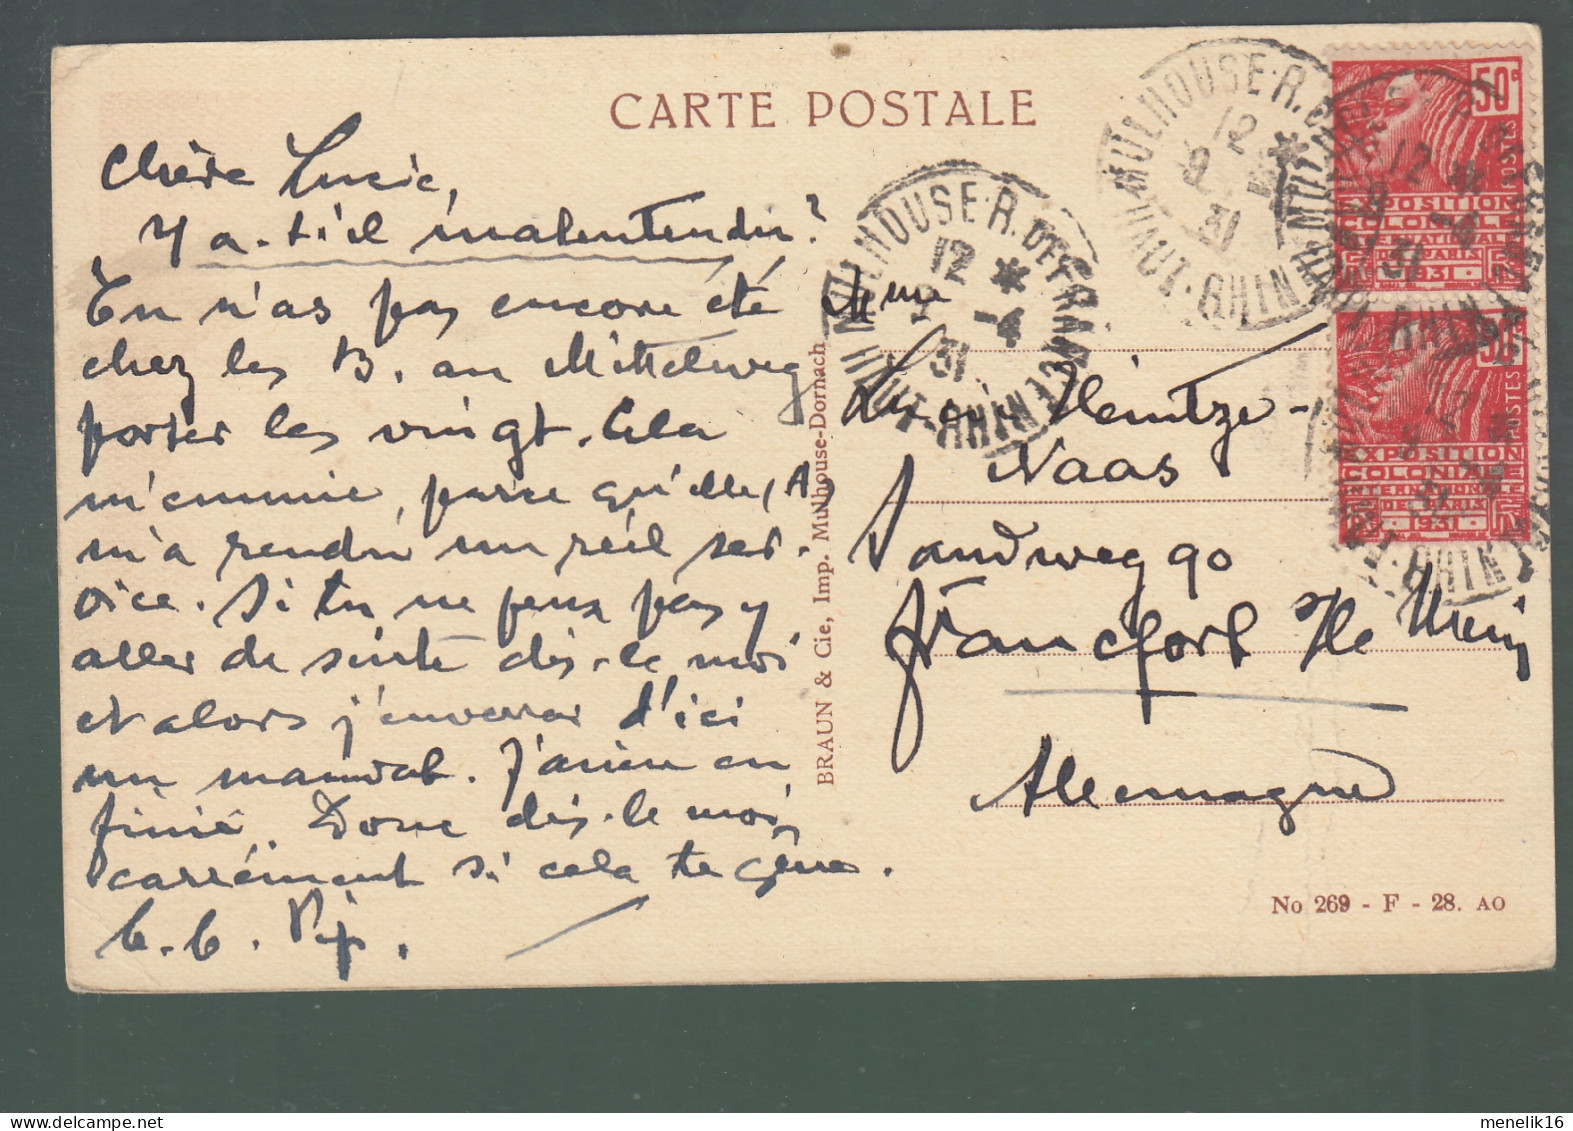 CARTE POSTALE
Chère Lucie,
Y a-t-il malentendu?
Tu n'as pas encore été
chez les B. au Mittelweg
porter les vingt. Cela
m'ennuie, parce qu'elle (A)
m'a rendu un réel ser-
vice. Si tu ne peux pas y
aller de suite dis-le moi
et alors j'enverrai d'ici
un mandat. J'
finie. Donc dis-le moi
carrément si cela te gêne.
BRAUN & Cie, Imp. Mulhouse-Dornach
Mme
Lucie Heintze-
Naas
Sandweg 90
Francfort s/le Mein
Allemagne
No 269 - F - 28. AO
MULHOUSE-R. DE FRANCE
12
9 -4
31
HAUT-RHIN
MULHOUSE-R.
12
9
31
HAUT-RHIN
50c
POSTES
EXPOSITION
COLONIALE
INTERNATIONALE
DE PARIS
1931
12
9 -4
31
HAUT-RHIN
50c
POSTES
EXPOSITION
COLONIALE
INTERNATIONALE
DE PARIS
1931
HAUT-RHIN
menelik16